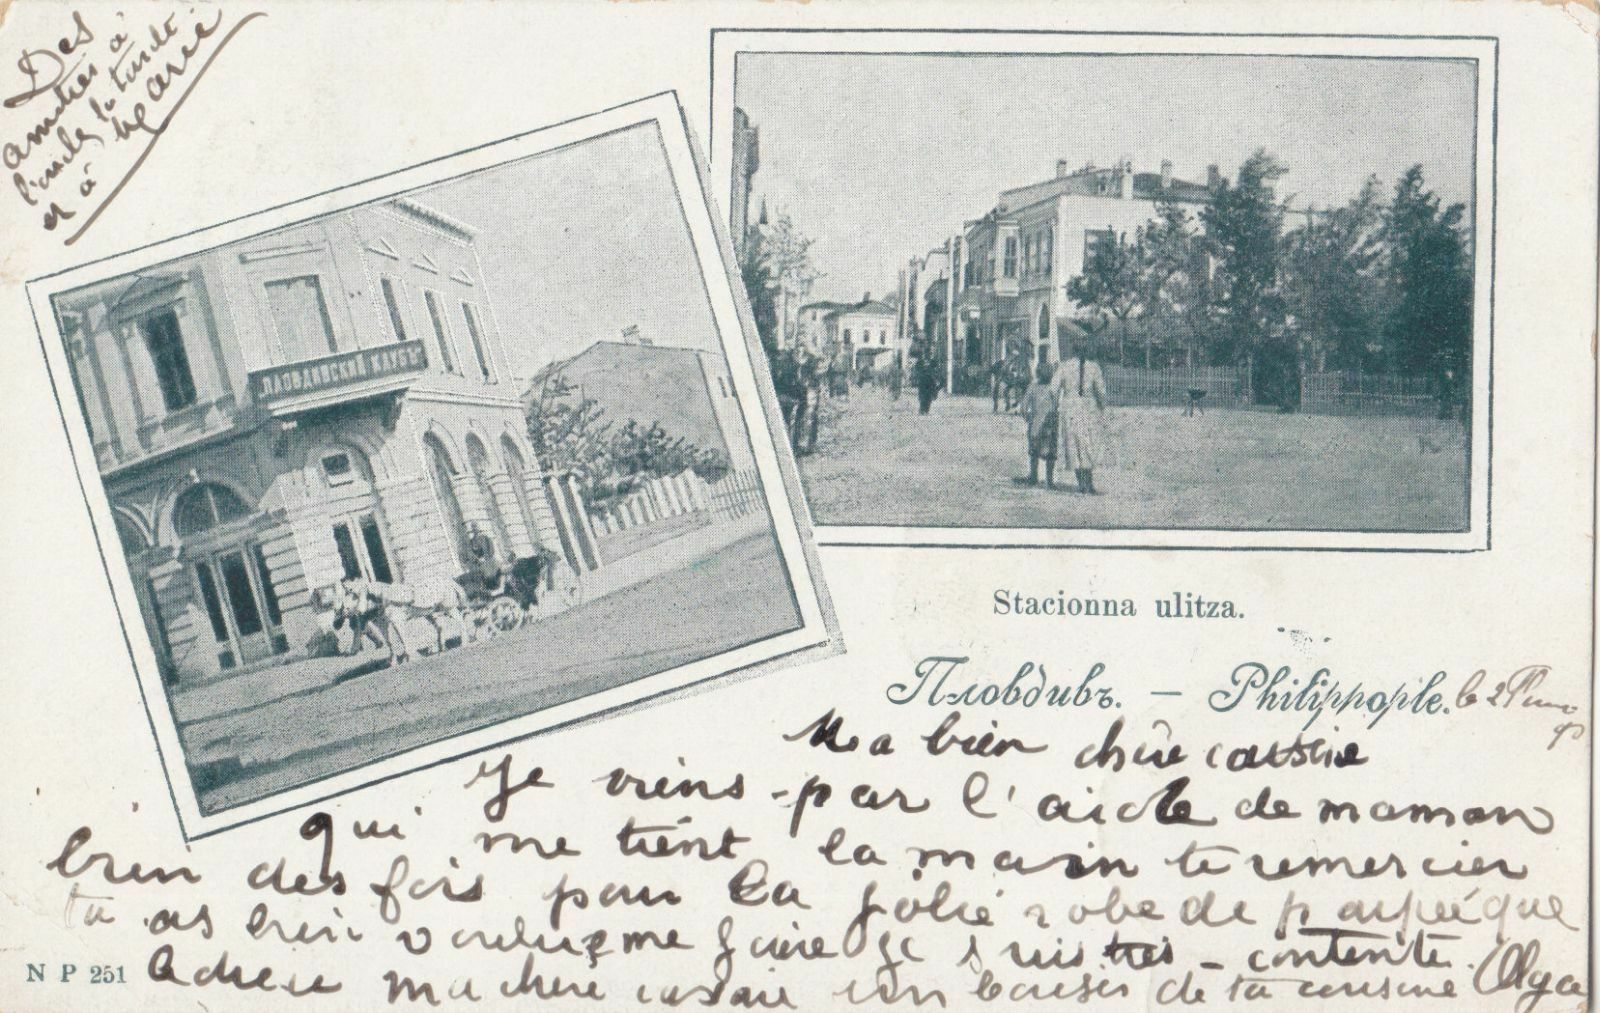 Des
amitiés à
l'oncle la tante
et à Marie
ПЛОВДИВСКИЙ КЛУБЪ
Stacionna ulitza.
Пловдивъ. — Philippople. le 2
Ma bien chère cossie
Je viens par l'aide de maman
qui me tient la main te remercier
bien des fois pour la jolie robe de poupée que
tu as bien voulu me faire je suis très contente.
N P 251
ma chère cossie un baiser de ta cousine Olga